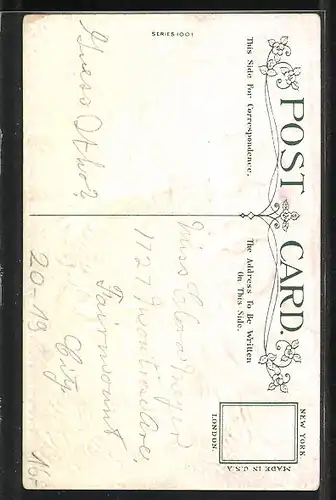 SERIES 1001
POST CARD.
This Side For Correspondence.
The Address To Be Written
On This Side.
NEW YORK
MADE IN U.S.A.
LONDON.
Guess Who?
Miss Clara Meyer
1727
Fairmount
City
20-19
16-